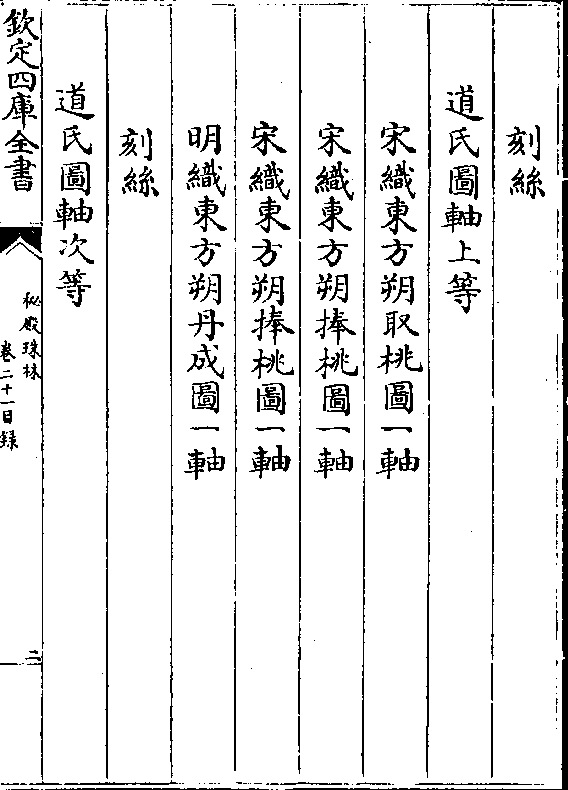 刻絲
道氏圖軸上等
宋織東方朔取桃圖一軸
宋織東方朔捧桃圖一軸
宋織東方朔捧桃圖一軸
明織東方朔丹成圖一軸
刻絲
道氏圖軸次等
欽定四庫全書
秘殿珠林
卷二十一目錄
二